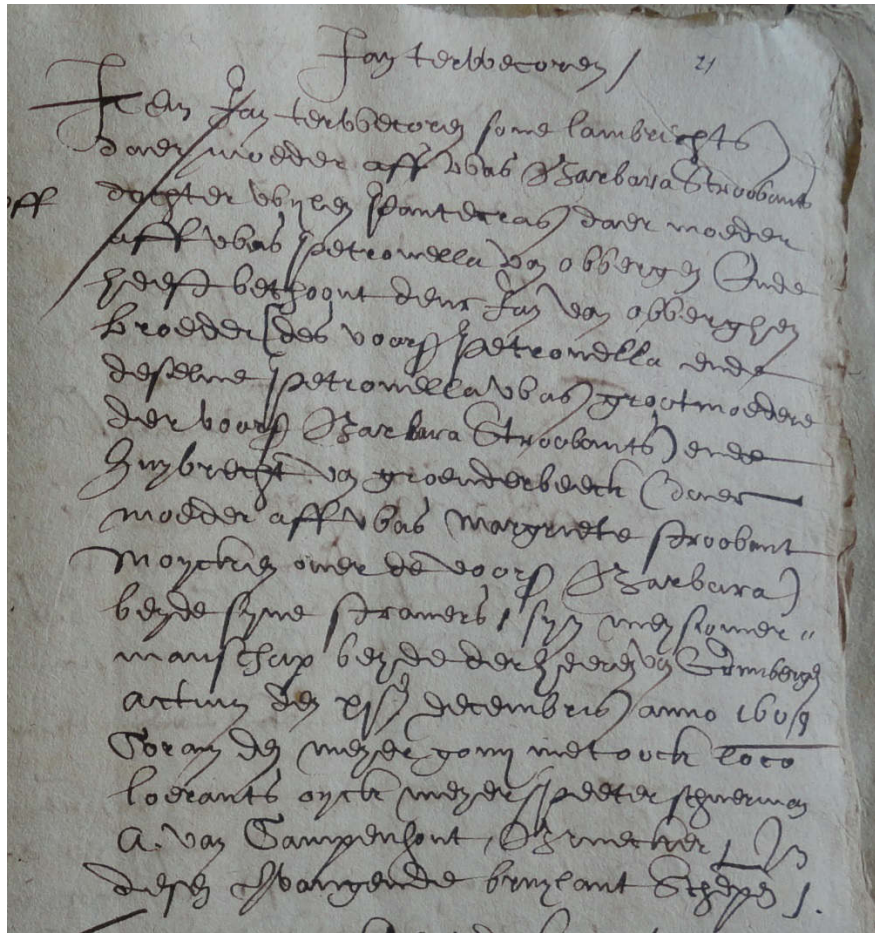 Jan terweeoren / 21
Item Jan terweeoren sone lambrichts
daer moeder aff was Barbara Stroobants
off dochter wijlen pancras daer moeder
aff was petronella van obbergen Ende
heeft bethoont deur Jan van obberghen
broeder des voors petronella ende
deselve petronella was grootmoedere
der voors Barbara Stroobants ende
Huybrecht van groenderbeeck (daer
moeder aff was margriete stroobant
moycken over de voors Barbara)
beyde syne
manschap beyde der heeren van Grimbergen
actum den decembris anno 1609
Coram den meyer met oock loco
loerants oyck meyer peeter
A. van Campenhout,
desen schepen